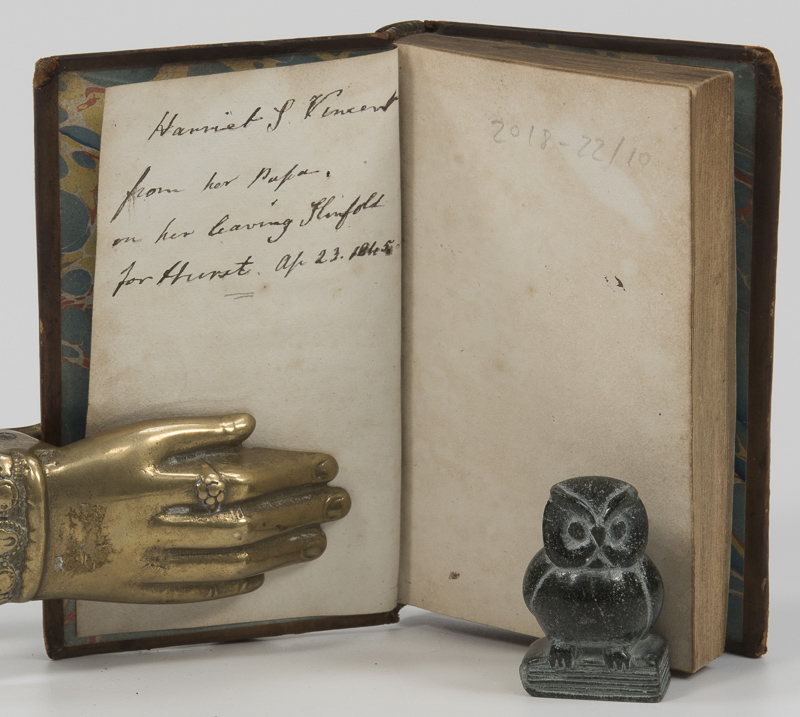 Harriet S Vincent
from her Papa,
on her leaving Slinfold
for Hurst. Ap 23. 1845
2018-22/10